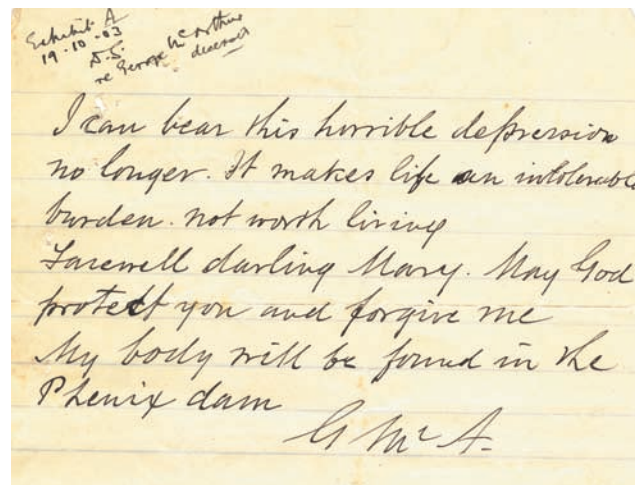 Exhibit A
19-10-03
D.S.
re George McArthur
deceased
I can bear this horrible depression
no longer. It makes life an intolerable
burden. not worth living
Farewell darling Mary. May God
protect you and forgive me
My body will be found in the
Phenix dam
G McA.